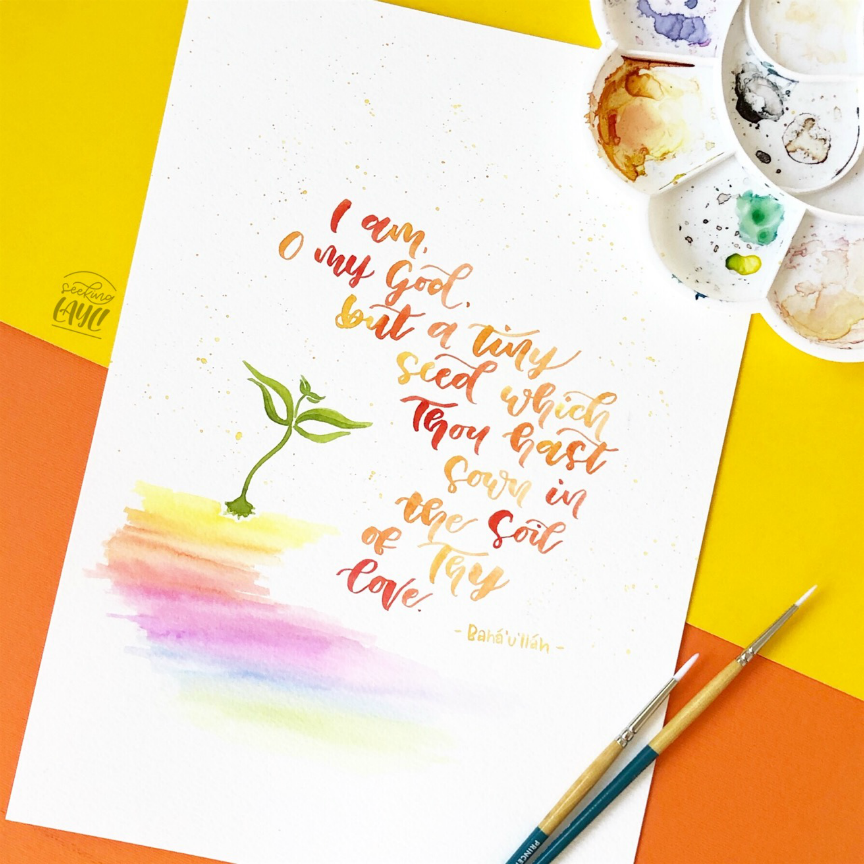 I am,
O my God,
but a tiny
seed which
Thou hast
sown in
the soil
of Thy
love.
- Bahá'u'lláh -
seeking
LAYLI
PRINCE